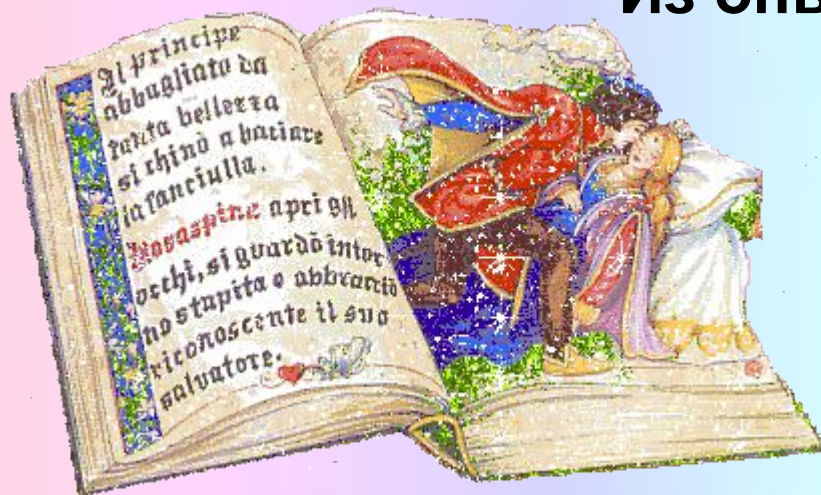 Из опы
Il principe
abbagliato da
tanta bellezza
si chinò a baciare
la fanciulla.
Rosaspina aprì gli
occhi, si guardò intor
no stupita e abbracciò
riconoscente il suo
salvatore.